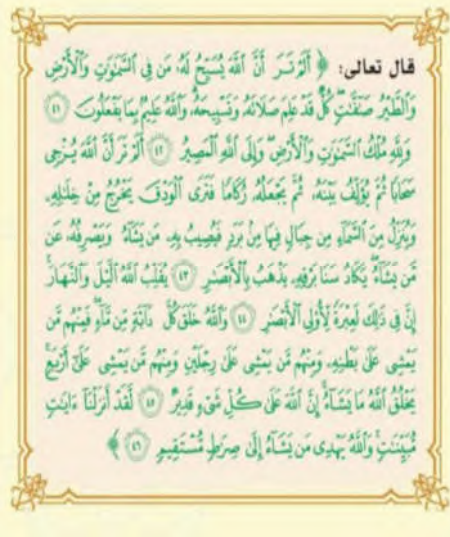 قال تعالى: ﴿ أَلَمْ تَرَ أَنَّ ٱللَّهَ يُسَبِّحُ لَهُۥ مَن فِى ٱلسَّمَٰوَٰتِ وَٱلْأَرْضِ
وَٱلطَّيْرُ صَٰٓفَّٰتٍ كُلٌّ قَدْ عَلِمَ صَلَاتَهُۥ وَتَسْبِيحَهُۥ وَٱللَّهُ عَلِيمٌۢ بِمَا يَفْعَلُونَ ٤١
وَلِلَّهِ مُلْكُ ٱلسَّمَٰوَٰتِ وَٱلْأَرْضِ وَإِلَى ٱللَّهِ ٱلْمَصِيرُ ٤٢ أَلَمْ تَرَ أَنَّ ٱللَّهَ يُزْجِى
سَحَابًا ثُمَّ يُؤَلِّفُ بَيْنَهُۥ ثُمَّ يَجْعَلُهُۥ رُكَامًا فَتَرَى ٱلْوَدْقَ يَخْرُجُ مِنْ خِلَٰلِهِۦ
وَيُنَزِّلُ مِنَ ٱلسَّمَآءِ مِن جِبَالٍ فِيهَا مِنۢ بَرَدٍ فَيُصِيبُ بِهِۦ مَن يَشَآءُ وَيَصْرِفُهُۥ عَن
مَّن يَشَآءُ يَكَادُ سَنَا بَرْقِهِۦ يَذْهَبُ بِٱلْأَبْصَٰرِ ٤٣ يُقَلِّبُ ٱللَّهُ ٱلَّيْلَ وَٱلنَّهَارَ
إِنَّ فِى ذَٰلِكَ لَعِبْرَةً لِّأُو۟لِى ٱلْأَبْصَٰرِ ٤٤ وَٱللَّهُ خَلَقَ كُلَّ دَآبَّةٍ مِّن مَّآءٍ فَمِنْهُم مَّن
يَمْشِى عَلَىٰ بَطْنِهِۦ وَمِنْهُم مَّن يَمْشِى عَلَىٰ رِجْلَيْنِ وَمِنْهُم مَّن يَمْشِى عَلَىٰٓ أَرْبَعٍ
يَخْلُقُ ٱللَّهُ مَا يَشَآءُ إِنَّ ٱللَّهَ عَلَىٰ كُلِّ شَىْءٍ قَدِيرٌ ٤٥ لَّقَدْ أَنزَلْنَآ ءَايَٰتٍ
مُّبَيِّنَٰتٍ وَٱللَّهُ يَهْدِى مَن يَشَآءُ إِلَىٰ صِرَٰطٍ مُّسْتَقِيمٍ ٤٦ ﴾